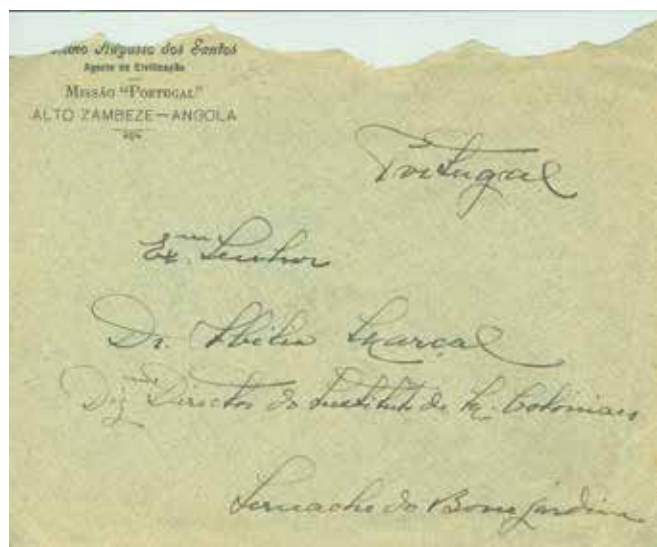 Augusto dos Santos
Agente de Civilização
Missão "Portugal"
ALTO ZAMBEZE—ANGOLA
Portugal
Ex.mo Senhor
Dr. Abilio Marçal
Dig.mo Director do Instituto de M. Coloniaes
Sernache do Bom jardim